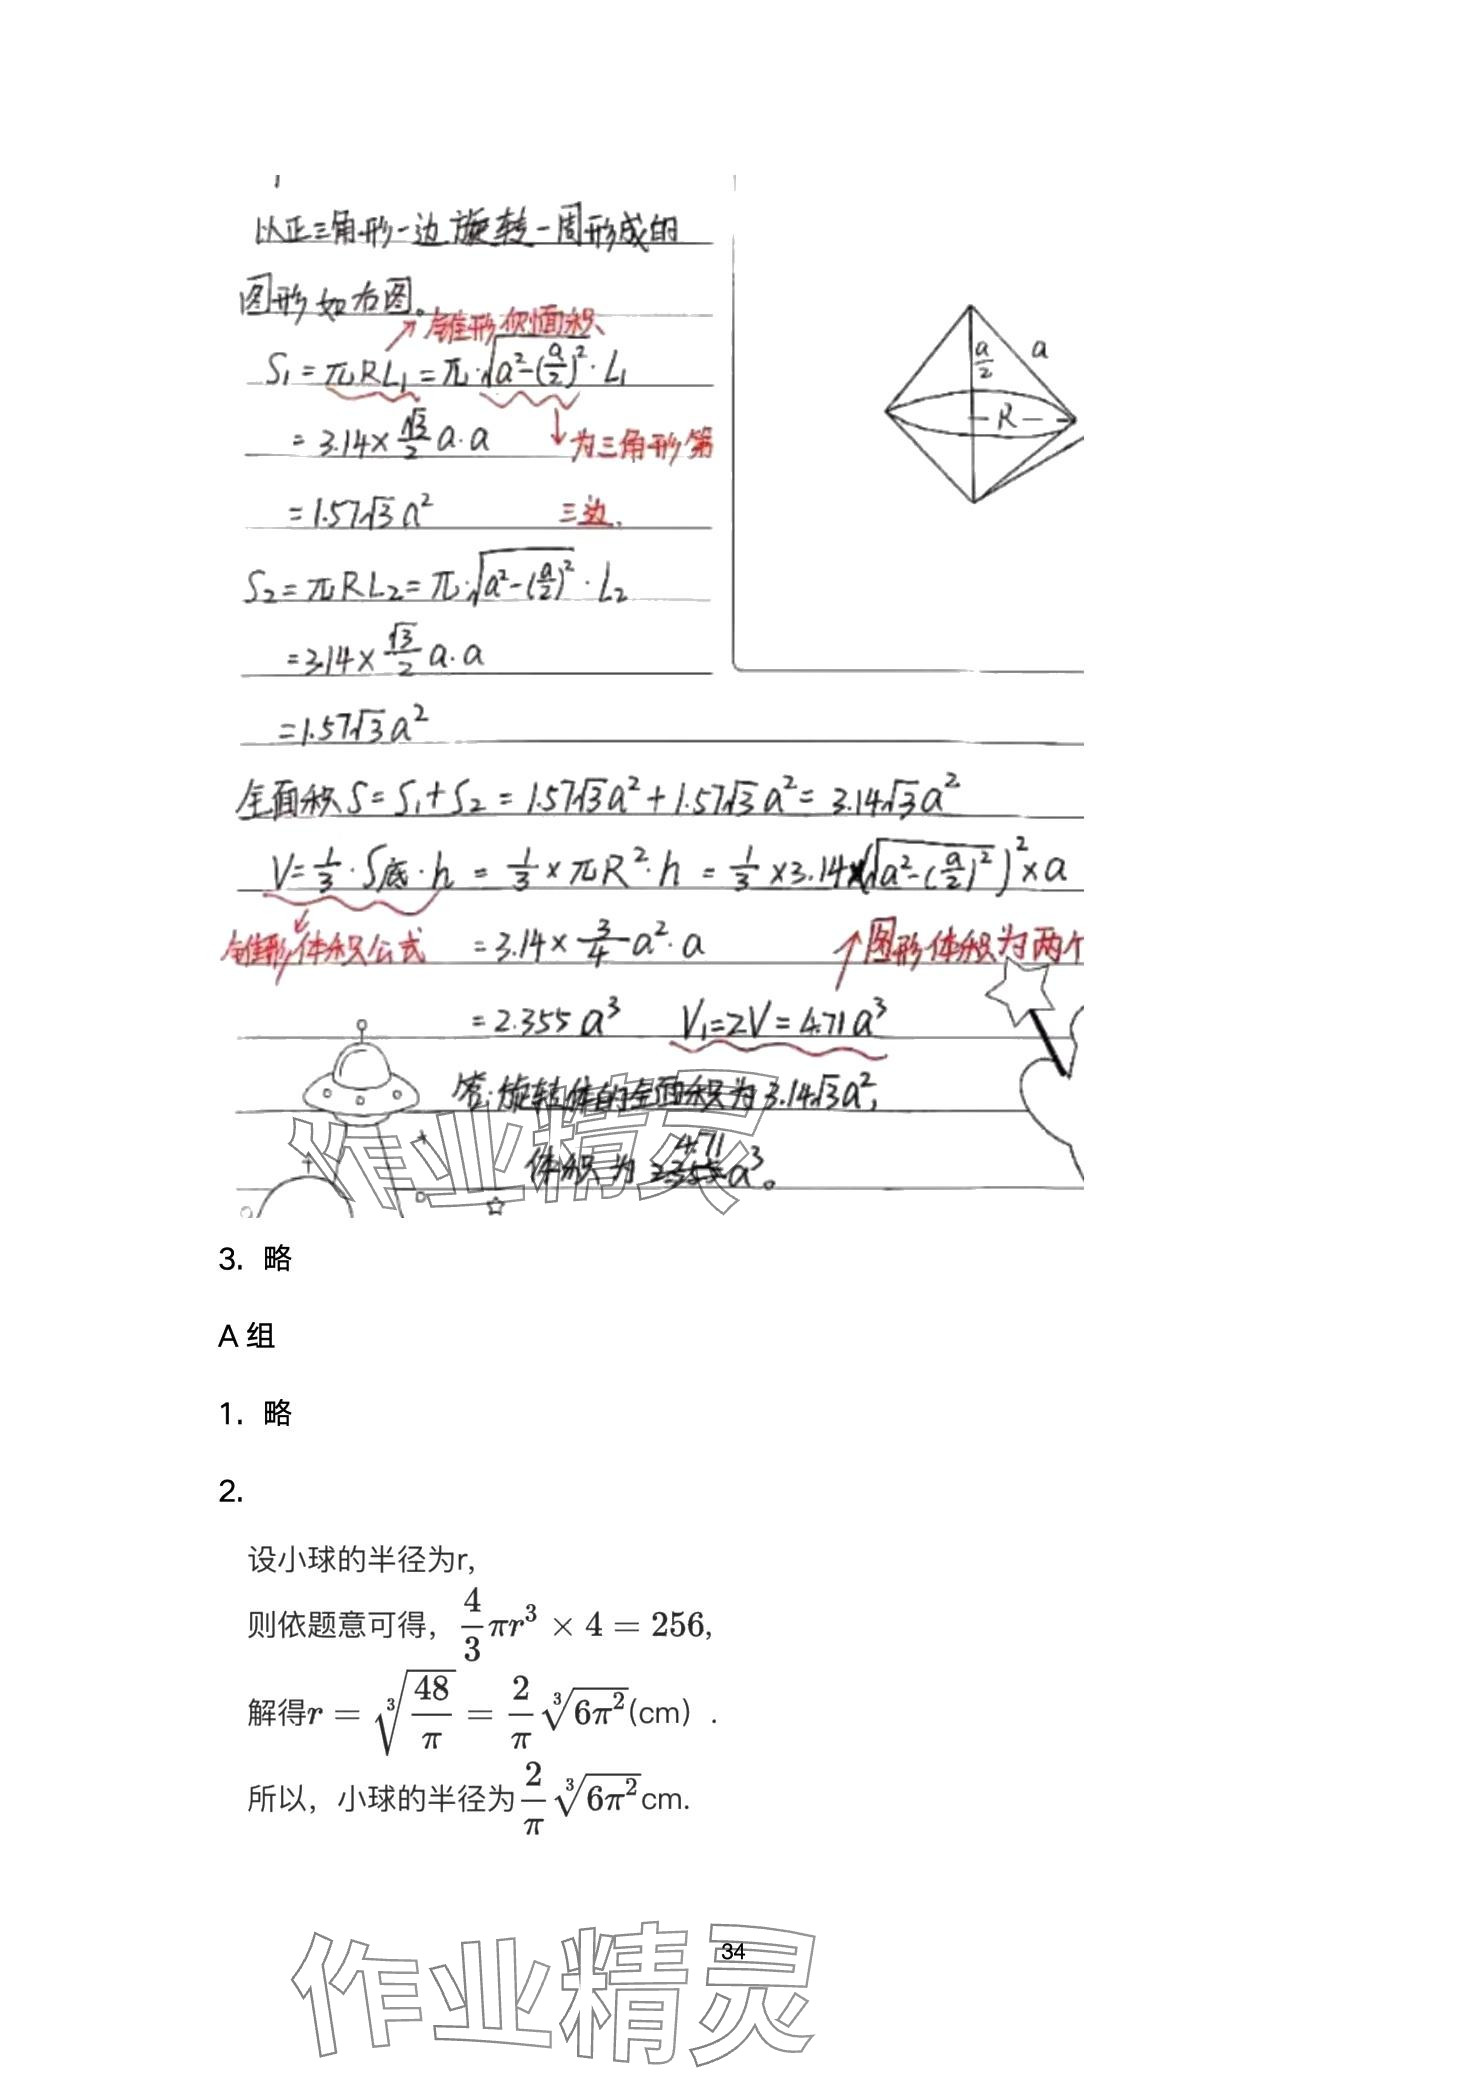 以正三角形一边旋转一周形成的
图形如右图。
锥形侧面积
S₁=πRL₁=π·√(a²-(a/2)²)·L₁
=3.14×√3/2 a·a
为三角形第
=1.57√3a²
三边.
S₂=πRL₂=π·√(a²-(a/2)²)·L₂
=3.14×√3/2 a·a
=1.57√3a²
a/2
a
R
全面积S=S₁+S₂=1.57√3a²+1.57√3a²=3.14√3a²
V=1/3·S底·h=1/3×πR²·h=1/3×3.14×(√(a²-(a/2)²))²×a
锥形体积公式
=3.14×3/4a²·a
图形体积为两个
=2.355a³ V₁=2V=4.71a³
答:旋转体的全面积为3.14√3a²,
体积为4.71a³。
作业精灵
3. 略
A 组
1. 略
2.
设小球的半径为r,
则依题意可得，4/3πr³×4=256,
解得r=∛(48/π)=2/π∛(6π²)(cm）.
所以，小球的半径为2/π∛(6π²)cm.
34
作业精灵